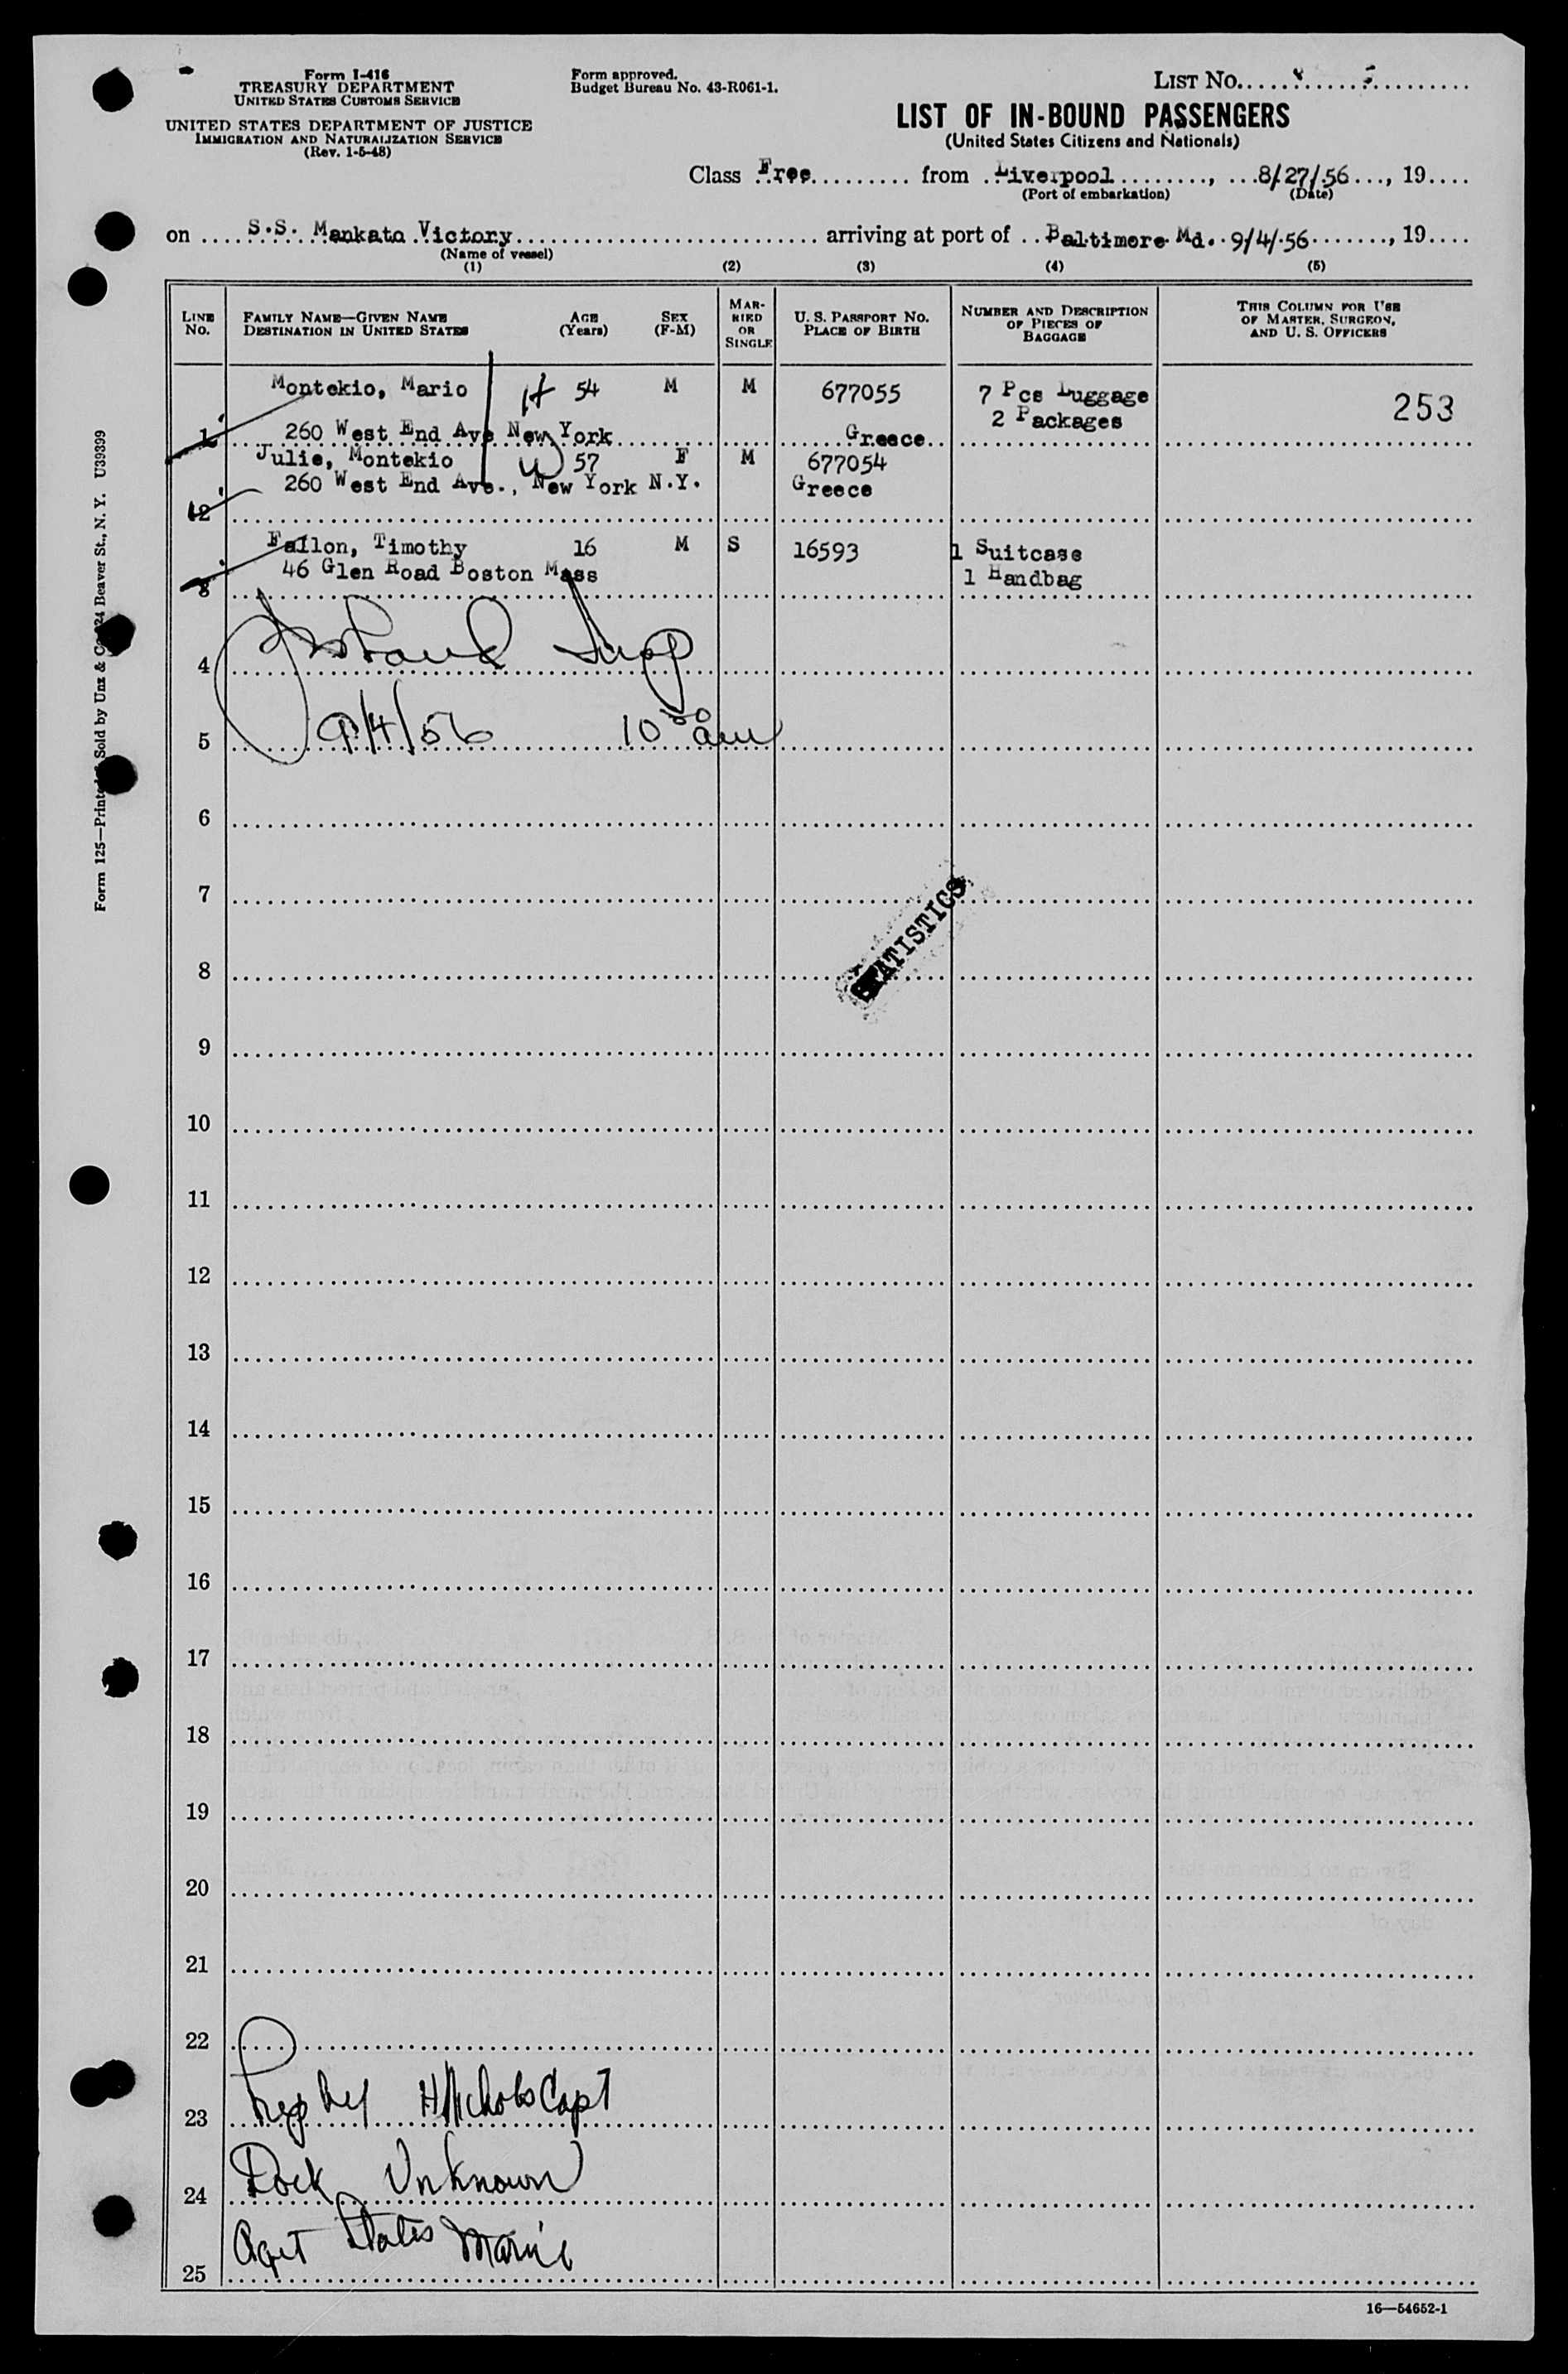 Form I-416
TREASURY DEPARTMENT
UNITED STATES CUSTOMS SERVICE
UNITED STATES DEPARTMENT OF JUSTICE
IMMIGRATION AND NATURALIZATION SERVICE
(Rev. 1-5-48)
Form approved.
Budget Bureau No. 43-R061-1.
LIST NO.
LIST OF IN-BOUND PASSENGERS
(United States Citizens and Nationals)
Class Free from Liverpool, 8/27/56, 19
(Port of embarkation) (Date)
on S.S. Mankato Victory arriving at port of Baltimore Md. 9/4/56, 19
(Name of vessel)
(1) (2) (3) (4) (5)
LINE NO.
FAMILY NAME—GIVEN NAME
DESTINATION IN UNITED STATES
AGE (Years)
SEX (F-M)
MARRIED OR SINGLE
U. S. PASSPORT NO.
PLACE OF BIRTH
NUMBER AND DESCRIPTION OF PIECES OF BAGGAGE
THIS COLUMN FOR USE OF MASTER, SURGEON, AND U. S. OFFICERS
Montekio, Mario H 54 M M 677055 7 Pcs Luggage 253
2 Packages
1 260 West End Ave New York Greece
Julie, Montekio W 57 F M 677054
260 West End Ave., New York N.Y. Greece
2
Fallon, Timothy 16 M S 16593 1 Suitcase
46 Glen Road Boston Mass 1 Handbag
3
4 Insp
5 9/4/56 10 00 am
6
7
STATISTICS
8
9
10
11
12
13
14
15
16
17
18
19
20
21
22
23 H Nichols Capt
24 Dock Unknown
25 Aget States Marine
16—54652-1
Form 125—Printed & Sold by Unz & Co., 24 Beaver St., N. Y. U39399